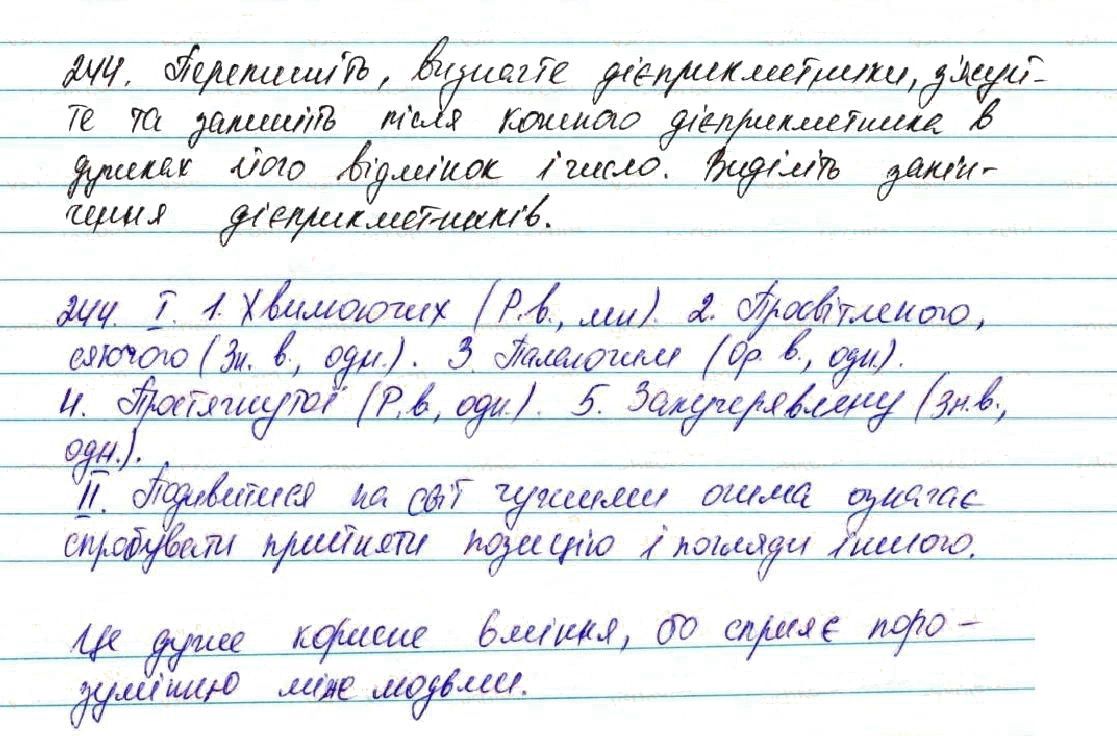 244. Перепишіть, визначте дієприкметники, з'ясуй-
те та запишіть після кожного дієприкметника в
дужках його відмінок і число. Виділіть закін-
чення дієприкметників.
244. I. 1. Хвилюючих (Р.в., мн). 2. Просвітленого,
сяючого (Зн. в., одн.). 3. Палаючим (Ор. в., одн.).
4. Простягнутої (Р.в, одн.). 5. Закучерявлену (Зн.в.,
одн.).
II. Подивитися на світ чужими очима означає
спробувати прийняти позицію і погляди іншого.
Це дуже корисне вміння, бо сприяє поро-
зумінню між людьми.